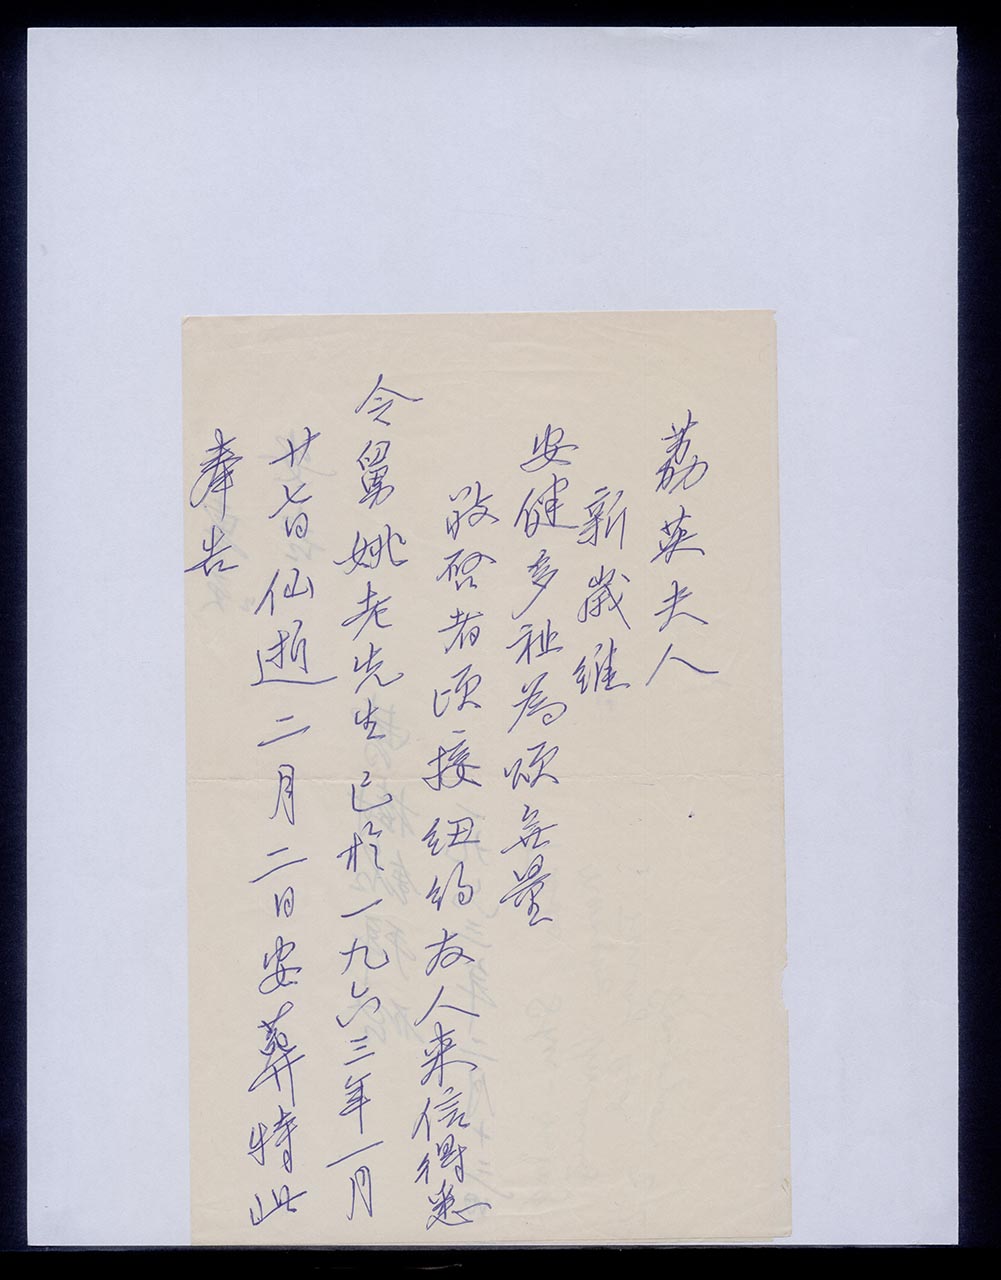 荔英夫人
新歲維
安健多祉為頌無量
敬啓者頃接纽約友人来信得悉
令舅姚老先生已於一九六三年一月
廿七日仙逝二月二日安葬特此
奉告